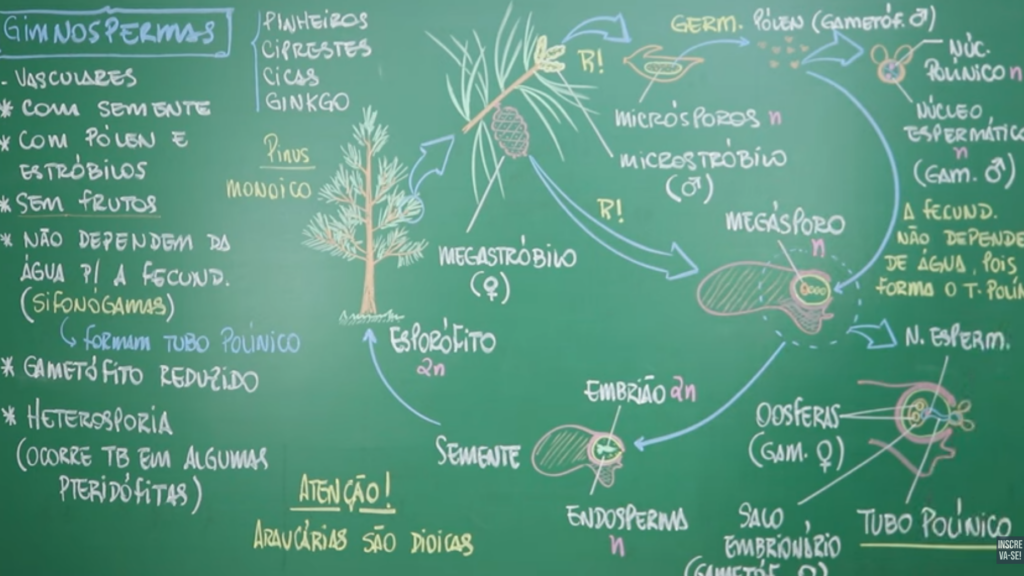 GIMNOSPERMAS
PINHEIROS
CIPRESTES
CICAS
GINKGO
- VASCULARES
* COM SEMENTE
* COM PÓLEN E
ESTRÓBILOS
* SEM FRUTOS
* NÃO DEPENDEM DA
ÁGUA P/ A FECUND.
(SIFONOGAMAS)
FORMAM TUBO POLÍNICO
* GAMETÓFITO REDUZIDO
* HETEROSPORIA
(OCORRE TB EM ALGUMAS
PTERIDÓFITAS)
Pinus
MONOICO
ESPORÓFITO
2n
MEGASTRÓBILO
(♀)
R!
R!
GERM.
PÓLEN (GAMETÓF. ♂)
MICRÓSPOROS n
MICROSTRÓBILO
(♂)
NÚC.
POLÍNICO n
NÚCLEO
ESPERMÁTIC
n
(GAM. ♂)
A FECUND.
NÃO DEPENDE
DE ÁGUA, POIS
FORMA O T. POLÍN
MEGÁSPORO
n
N. ESPERM.
OOSFERAS
(GAM. ♀)
SACO
EMBRIONÁRIO
(GAMETÓF. ♀)
TUBO POLÍNICO
EMBRIÃO 2n
SEMENTE
ENDOSPERMA
n
ATENÇÃO!
ARAUCÁRIAS SÃO DIOICAS
INSCRE
VA-SE!